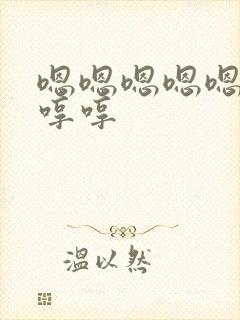 嗯嗯嗯嗯嗯
哼哼
温以然